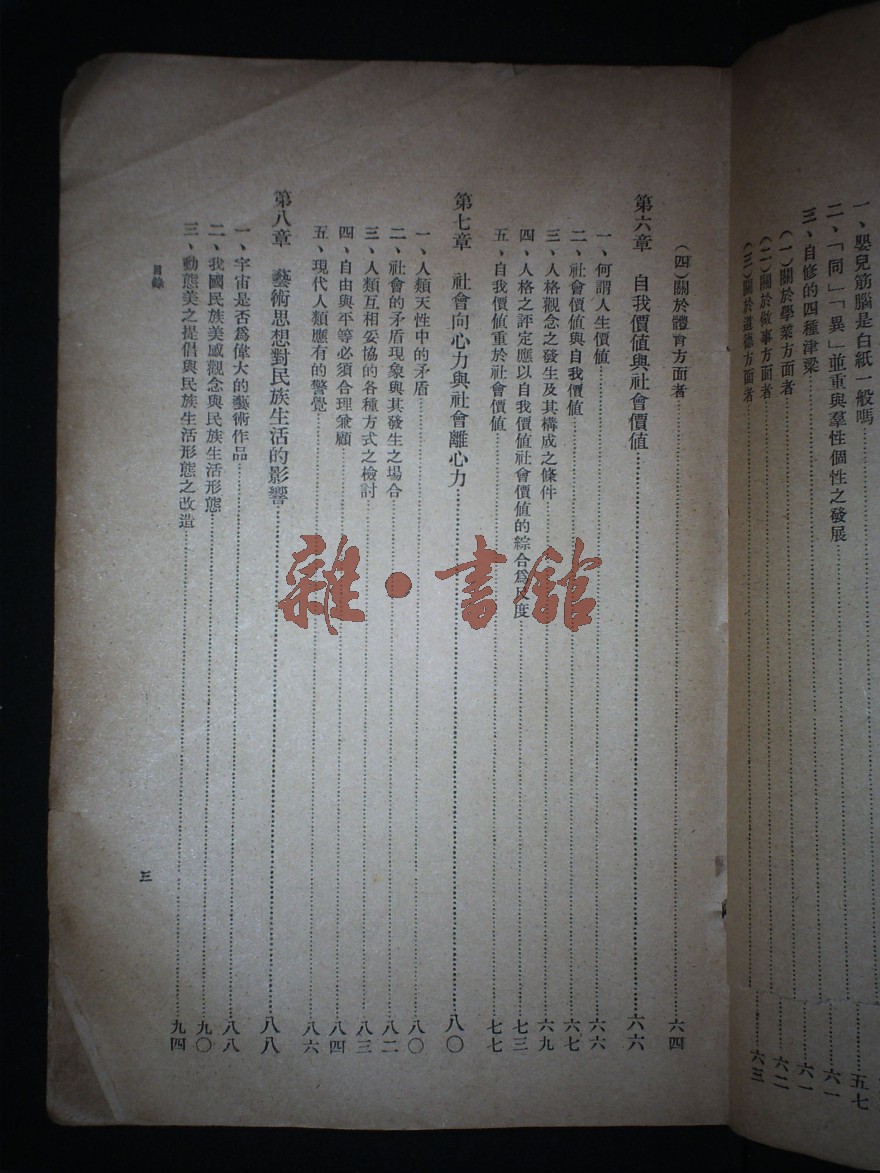 一、嬰兒筋腦是白紙一般嗎……五七
二、「同」「異」並重與羣性個性之發展……六一
三、自修的四種津梁……六一
(一)關於學業方面者……六二
(二)關於做事方面者
(三)關於道德方面者……六三
(四)關於體育方面者……六四
第六章 自我價值與社會價值……六六
一、何謂人生價值……六六
二、社會價值與自我價值……六七
三、人格觀念之發生及其構成之條件……六九
四、人格之評定應以自我價值社會價值的綜合爲尺度……七三
五、自我價值重於社會價值……七七
第七章 社會向心力與社會離心力……八〇
一、人類天性中的矛盾……八〇
二、社會的矛盾現象與其發生之場合……八二
三、人類互相妥協的各種方式之檢討……八三
四、自由與平等必須合理兼顧……八四
五、現代人類應有的警覺……八六
第八章 藝術思想對民族生活的影響……八八
一、宇宙是否爲偉大的藝術作品……八八
二、我國民族美感觀念與民族生活形態……九〇
三、動態美之提倡與民族生活形態之改造……九四
目錄
三
雜·書館